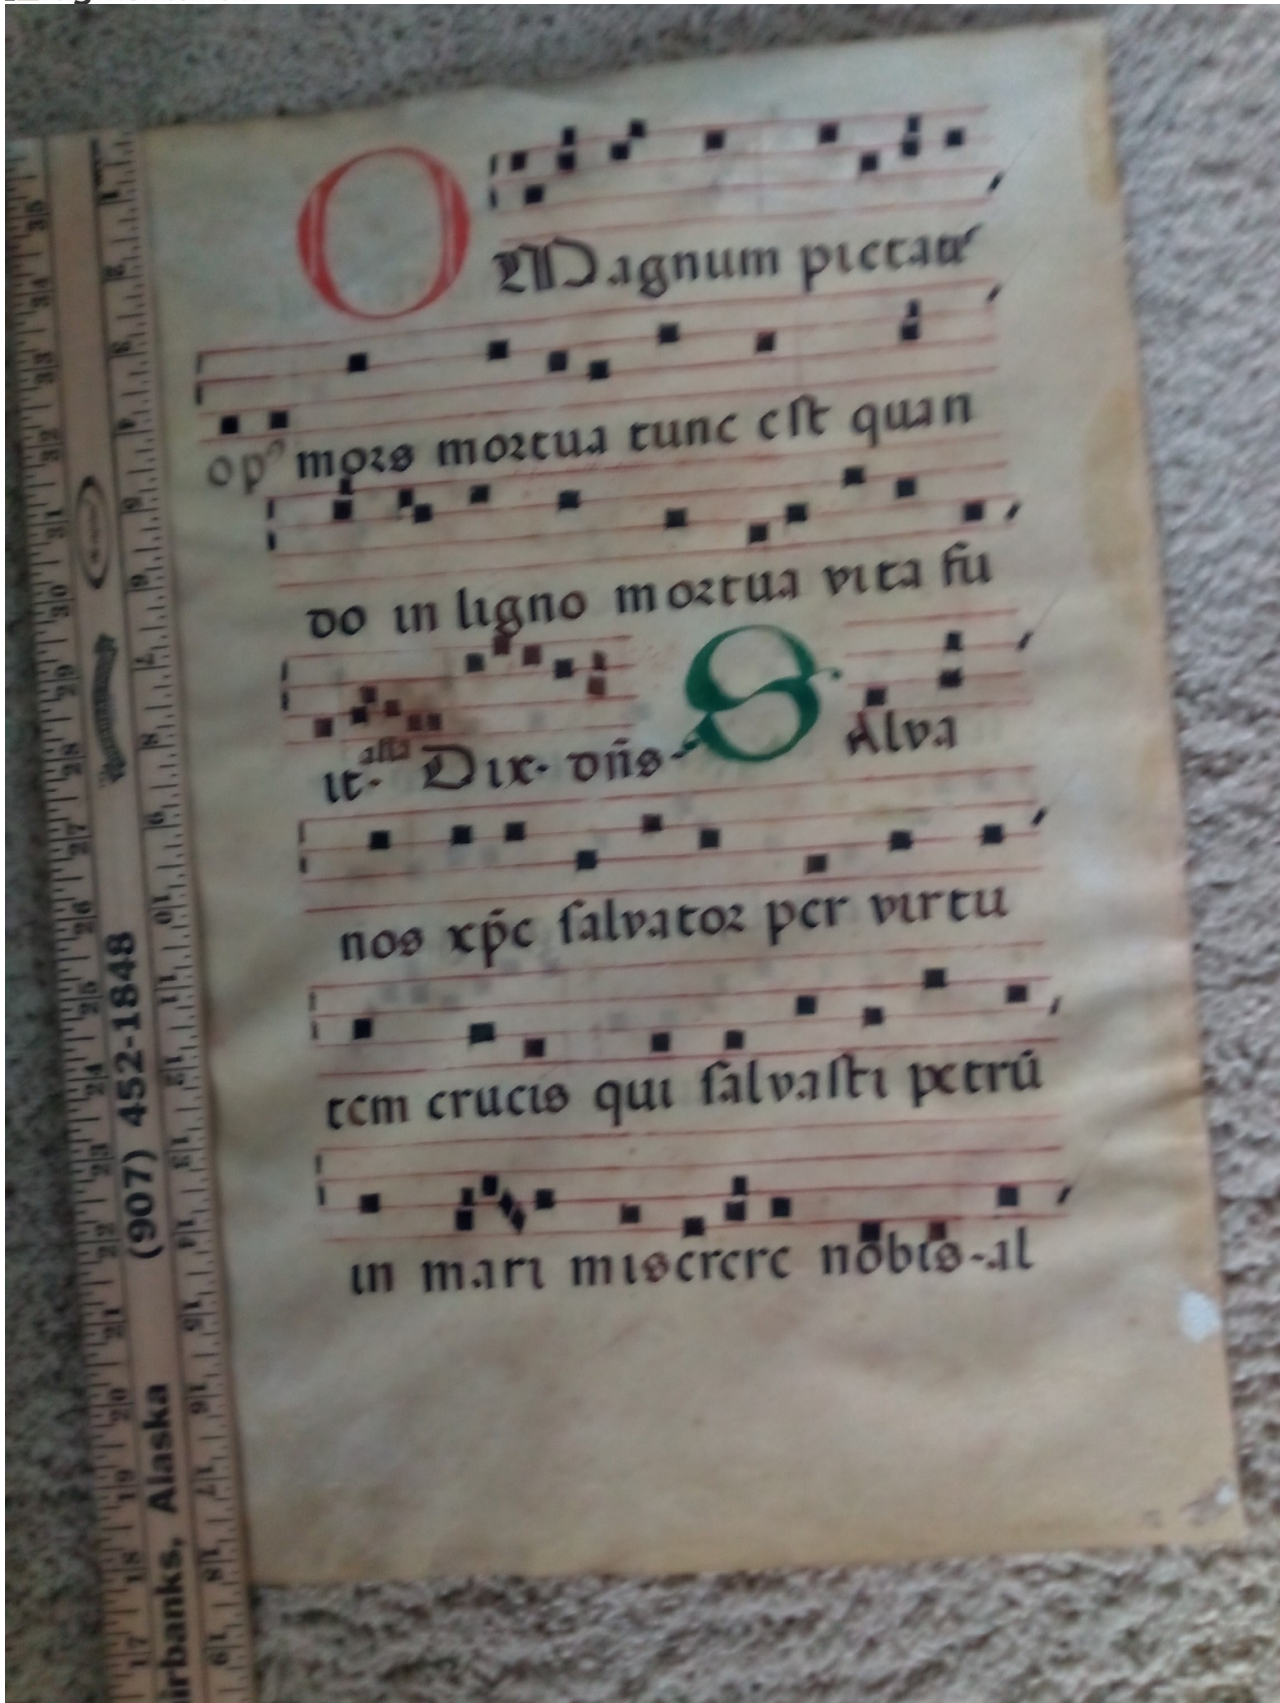 O Magnum pietatẽ
opꝰ mors mortua tunc eſt quan
do in ligno mortua vita fũ
it. aña Dix. dñs. S Alva
nos xp̃e ſalvator per virtu
tem crucis qui ſalvaſti petrũ
in mari miserere nobis. al
(907) 452-1848
irbanks, Alaska